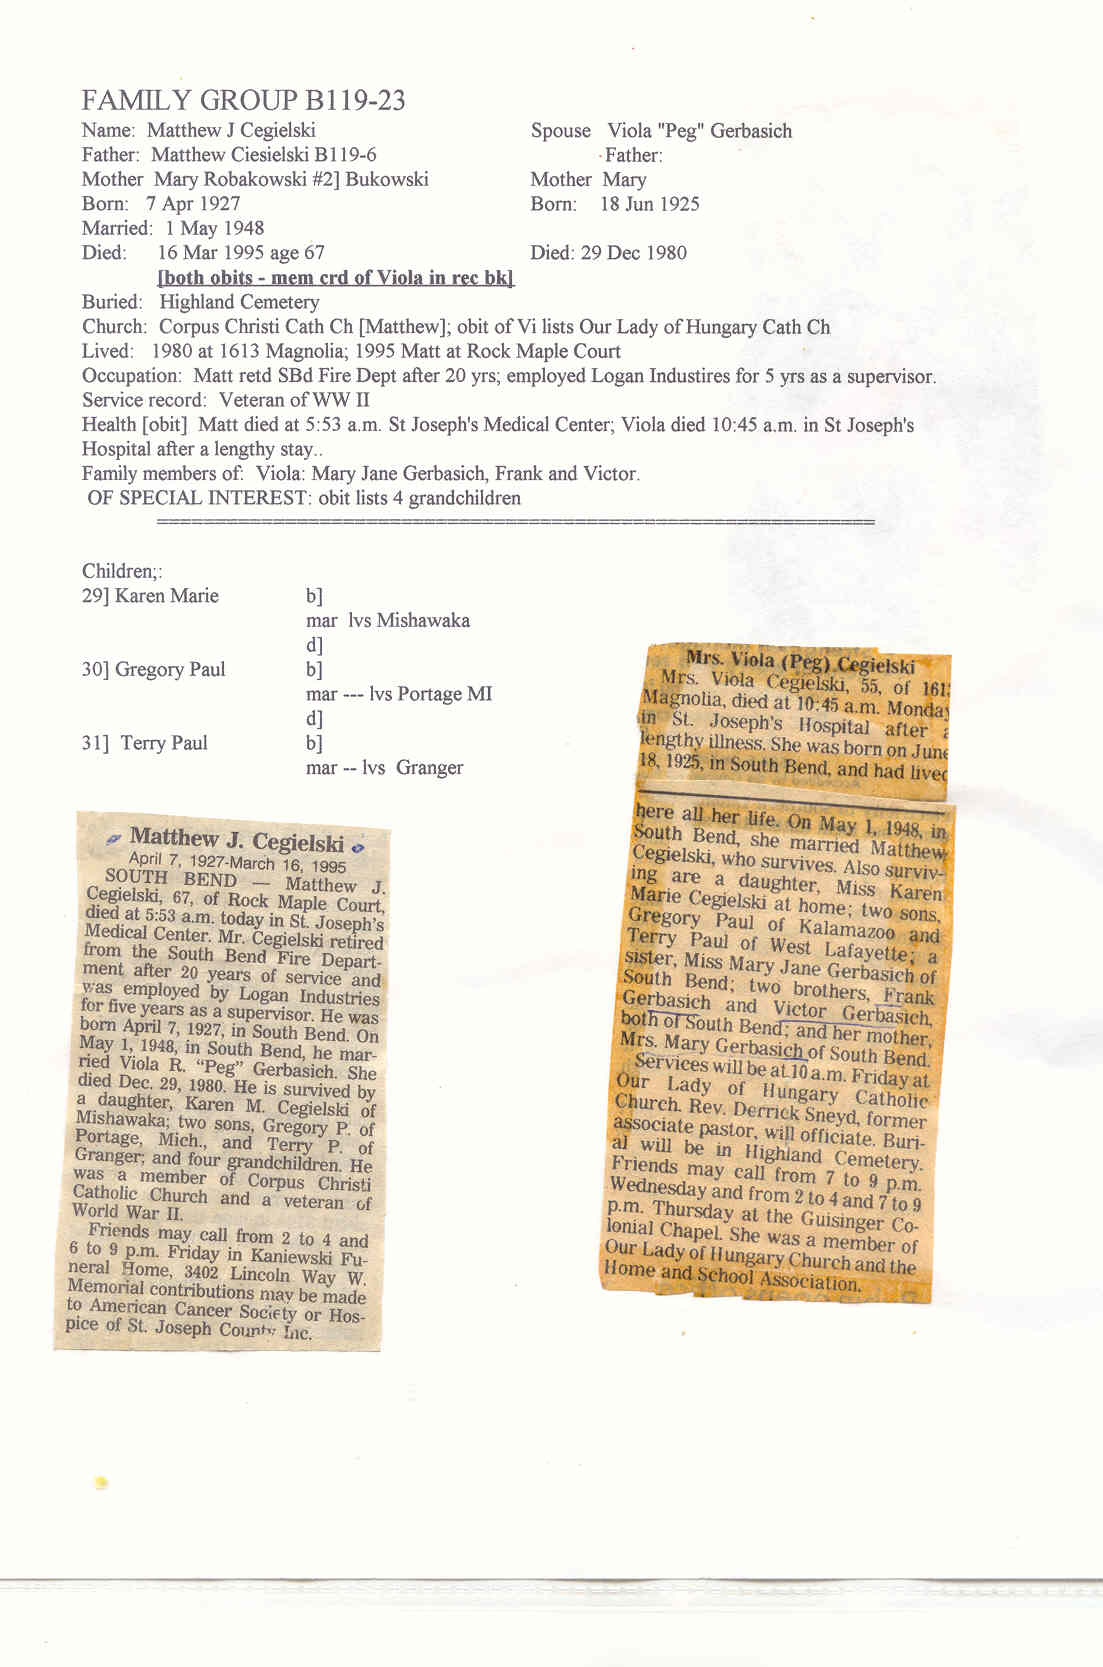 FAMILY GROUP B119-23
Name: Matthew J Cegielski Spouse Viola "Peg" Gerbasich
Father: Matthew Ciesielski B119-6 Father:
Mother Mary Robakowski #2] Bukowski Mother Mary
Born: 7 Apr 1927 Born: 18 Jun 1925
Married: 1 May 1948
Died: 16 Mar 1995 age 67 Died: 29 Dec 1980
[both obits - mem crd of Viola in rec bk]
Buried: Highland Cemetery
Church: Corpus Christi Cath Ch [Matthew]; obit of Vi lists Our Lady of Hungary Cath Ch
Lived: 1980 at 1613 Magnolia; 1995 Matt at Rock Maple Court
Occupation: Matt retd SBd Fire Dept after 20 yrs; employed Logan Industires for 5 yrs as a supervisor.
Service record: Veteran of WW II
Health [obit] Matt died at 5:53 a.m. St Joseph's Medical Center; Viola died 10:45 a.m. in St Joseph's
Hospital after a lengthy stay..
Family members of: Viola: Mary Jane Gerbasich, Frank and Victor.
OF SPECIAL INTEREST: obit lists 4 grandchildren
Children;:
29] Karen Marie b]
mar lvs Mishawaka
d]
30] Gregory Paul b]
mar --- lvs Portage MI
d]
31] Terry Paul b]
mar -- lvs Granger
Matthew J. Cegielski
April 7, 1927-March 16, 1995
SOUTH BEND — Matthew J.
Cegielski, 67, of Rock Maple Court,
died at 5:53 a.m. today in St. Joseph's
Medical Center. Mr. Cegielski retired
from the South Bend Fire Depart-
ment after 20 years of service and
was employed by Logan Industries
for five years as a supervisor. He was
born April 7, 1927, in South Bend. On
May 1, 1948, in South Bend, he mar-
ried Viola R. "Peg" Gerbasich. She
died Dec. 29, 1980. He is survived by
a daughter, Karen M. Cegielski of
Mishawaka; two sons, Gregory P. of
Portage, Mich., and Terry P. of
Granger; and four grandchildren. He
was a member of Corpus Christi
Catholic Church and a veteran of
World War II.
Friends may call from 2 to 4 and
6 to 9 p.m. Friday in Kaniewski Fu-
neral Home, 3402 Lincoln Way W.
Memorial contributions may be made
to American Cancer Society or Hos-
pice of St. Joseph County Inc.
Mrs. Viola (Peg) Cegielski
Mrs. Viola Cegielski, 55, of 161
Magnolia, died at 10:45 a.m. Monda
in St. Joseph's Hospital after
lengthy illness. She was born on June
18, 1925, in South Bend, and had lived
here all her life. On May 1, 1948, in
South Bend, she married Matthew
Cegielski, who survives. Also surviv-
ing are a daughter, Miss Karen
Marie Cegielski at home; two sons,
Gregory Paul of Kalamazoo and
Terry Paul of West Lafayette; a
sister, Miss Mary Jane Gerbasich of
South Bend; two brothers, Frank
Gerbasich and Victor Gerbasich,
both of South Bend; and her mother,
Mrs. Mary Gerbasich of South Bend.
Services will be at 10 a.m. Friday at
Our Lady of Hungary Catholic
Church. Rev. Derrick Sneyd, former
associate pastor, will officiate. Buri-
al will be in Highland Cemetery.
Friends may call from 7 to 9 p.m.
Wednesday and from 2 to 4 and 7 to 9
p.m. Thursday at the Guisinger Co-
lonial Chapel. She was a member of
Our Lady of Hungary Church and the
Home and School Association.